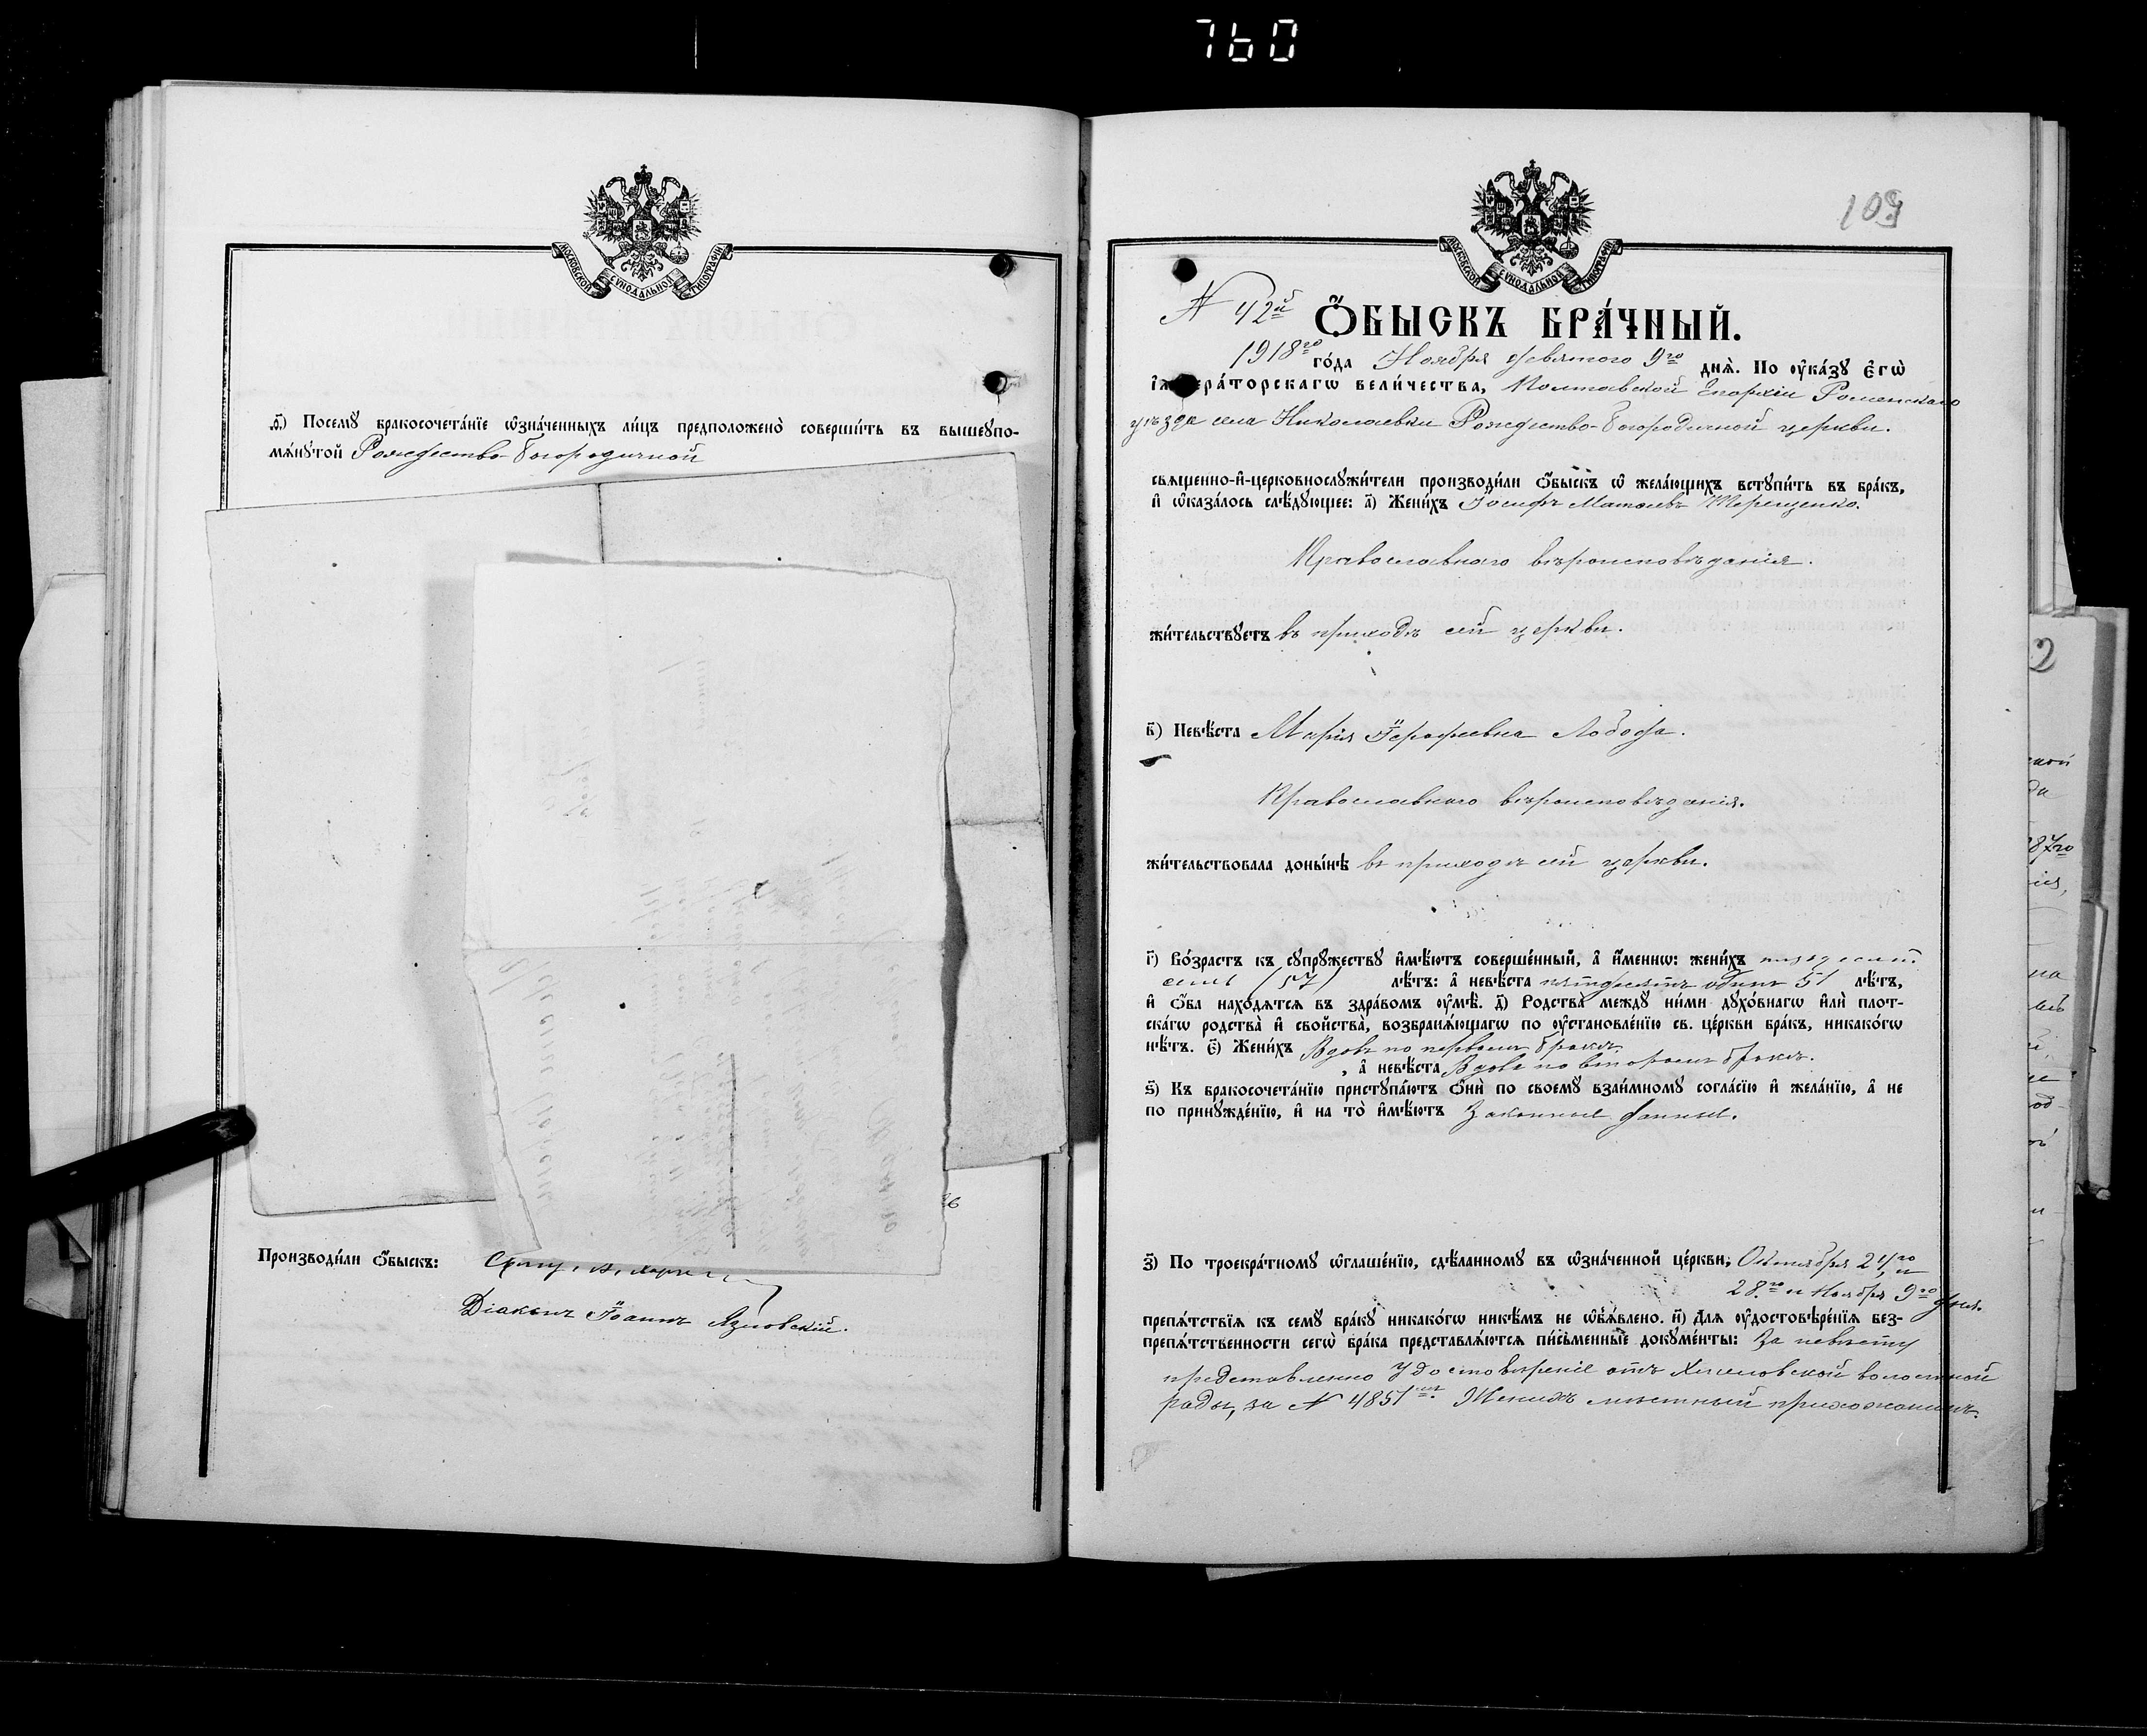 760
МОСКОВСКОЙ СѴНОДАЛЬНОЙ ТИПОГРАФІИ
ѳ҃) Посемꙋ бракосочета́нїе ѡ҆зна́ченныхъ ли́цъ предположено̀ соверши́ть въ вышеꙋпо-
мѧ́нꙋтой Рождество-Богородичной
Производи́ли ѻ҆́быскъ:
Діаконъ Іоаннъ Язловскій.
109
МОСКОВСКОЙ СѴНОДАЛЬНОЙ ТИПОГРАФІИ
N 42й Ѻ҆́БЫСКЪ БРА́ЧНЫЙ.
1918го го́да Ноября девятого 9го днѧ̀. По ᲂу҆ка́зꙋ є҆гѡ̀
і҆мпера́торскагѡ вели́чества, Полтавской Епархіи Роменскаго
уѣзда села Николаевки Рождество-Богородичной церкви.
свѧщенно-и҆-церковнослꙋжи́тели производи́ли ѻ҆́быскъ ѡ҆ жела́ющихъ встꙋпи́ть въ бра́къ,
и҆ ѡ҆каза́лось слѣ́дꙋющее: а҃) Жени́хъ Іосифъ Матѳеевъ Терещенко.
Православнаго вѣроисповѣданія.
жи́тельствꙋетъ въ приходѣ сей церкви.
в҃) Невѣ́ста Марія Іерофеевна Лобода.
Православнаго вѣроисповѣданія.
жи́тельствовала доны́нѣ въ приходѣ сей церкви.
г҃) Во́зрастъ къ сꙋпрꙋ́жествꙋ и҆мѣ́ютъ соверше́нный, а҆ и҆́менно: жени́хъ пятдесят
семь (57) лѣ́тъ: а҆ невѣ́ста пятдесятъ одинъ 51 лѣ́тъ,
и҆ ѻ҆́ба нахо́дѧтсѧ въ здра́вомъ ᲂу҆мѣ̀. д҃) Родства̀ междꙋ ни́ми дꙋхо́внагѡ и҆лѝ плот-
ска́гѡ родства̀ и҆ свойства̀, возбранѧ́ющагѡ по ᲂу҆становле́нїю св. це́ркви бра́къ, никако́гѡ
нѣ́тъ. є҃) Жени́хъ Вдовъ по первомъ бракѣ
, а҆ невѣ́ста Вдова по второмъ бракѣ.
ѕ҃) Къ бракосочета́нїю пристꙋпа́ютъ ѻ҆нѝ по своемꙋ̀ взаи́мномꙋ согла́сїю и҆ жела́нїю, а҆ не
по принꙋжде́нїю, и҆ на то̀ и҆мѣ́ютъ Законные данные.
з҃) По троекра́тномꙋ ѡ҆глаше́нїю, сдѣ́ланномꙋ въ ѡ҆зна́ченной це́ркви, Октября 21го,
28го и Ноября 9го дня.
препѧ́тствїѧ къ семꙋ̀ бра́кꙋ никако́гѡ никѣ́мъ не ѡ҆б̾ѧ́влено. и҃) Длѧ̀ ᲂу҆достовѣ́ренїѧ без-
препѧ́тственности сегѡ̀ бра́ка представлѧ́ютсѧ пи́сьменные докꙋме́нты: За невѣсту
представленно Удостовѣреніе отъ волостной
рады, за N 4851мъ. Женихъ мѣстный прихожанинъ.